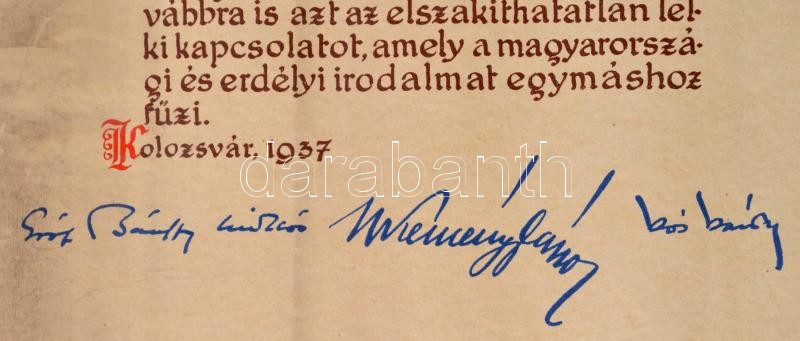 vábbra is azt az elszakithatatlan lel-
ki kapcsolatot, amely a magyarorszá-
gi és erdélyi irodalmat egymáshoz
fűzi.
Kolozsvár, 1937
darabanth
Gróf Bánffy Miklós Kemény János Kós Károly